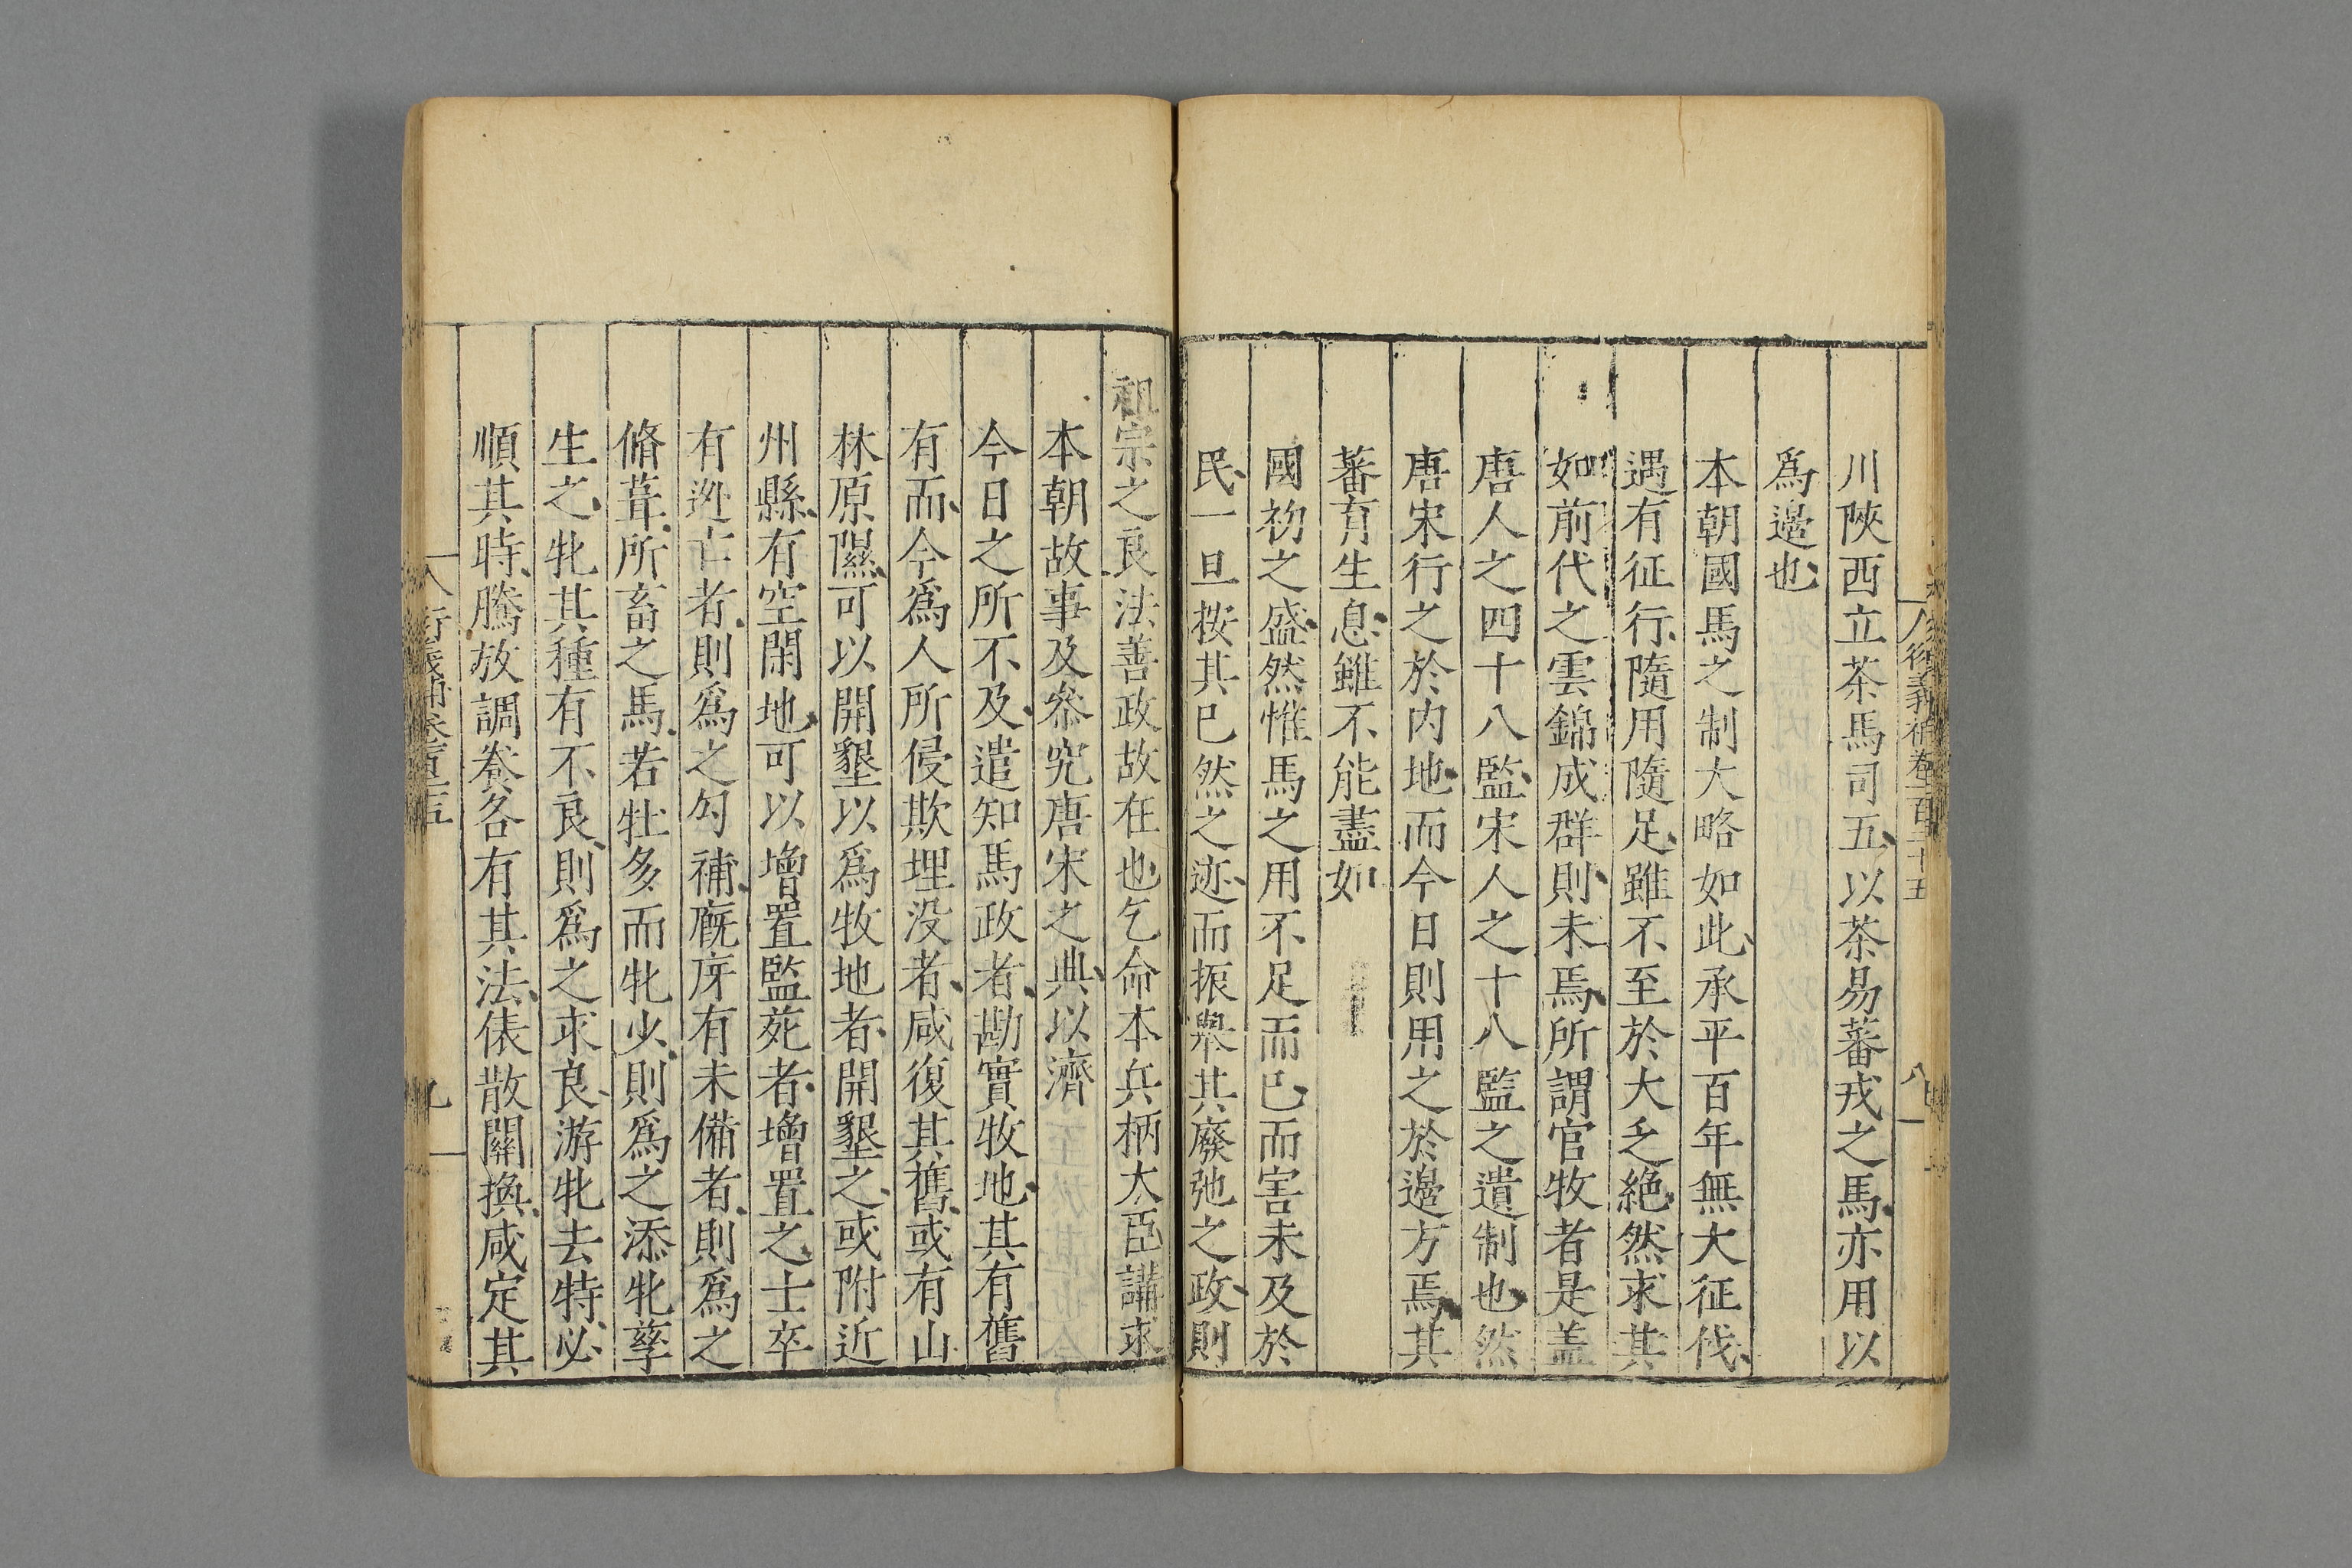 川陜西立茶馬司五以茶易蕃戎之馬亦用以
爲邊也
本朝國馬之制大略如此承平百年無大征伐
遇有征行隨用隨足雖不至於大乏絕然求其
如前代之雲錦成群則未焉所謂官牧者是盖
唐人之四十八監宋人之十八監之遺制也然
唐宋行之於内地而今日則用之於邊方焉其
蕃育生息雖不能盡如
國初之盛然惟馬之用不足而已而害未及於
民一旦按其已然之迹而振舉其廢弛之政則
祖宗之良法善政故在也乞命本兵柄大臣講求
本朝故事及叅究唐宋之典以濟
今日之所不及遣知馬政者勘實牧地其有舊
有而今爲人所侵欺埋没者咸復其舊或有山
林原隰可以開墾以爲牧地者開墾之或附近
州縣有空閑地可以增置監苑者增置之士卒
有逃亡者則爲之勾補廐房有未備者則爲之
脩葺所畜之馬若牡多而牝少則爲之添牝孳
生之牝其種有不良則爲之求良游牝去特必
順其時騰放調養各有其法俵散關換咸定其